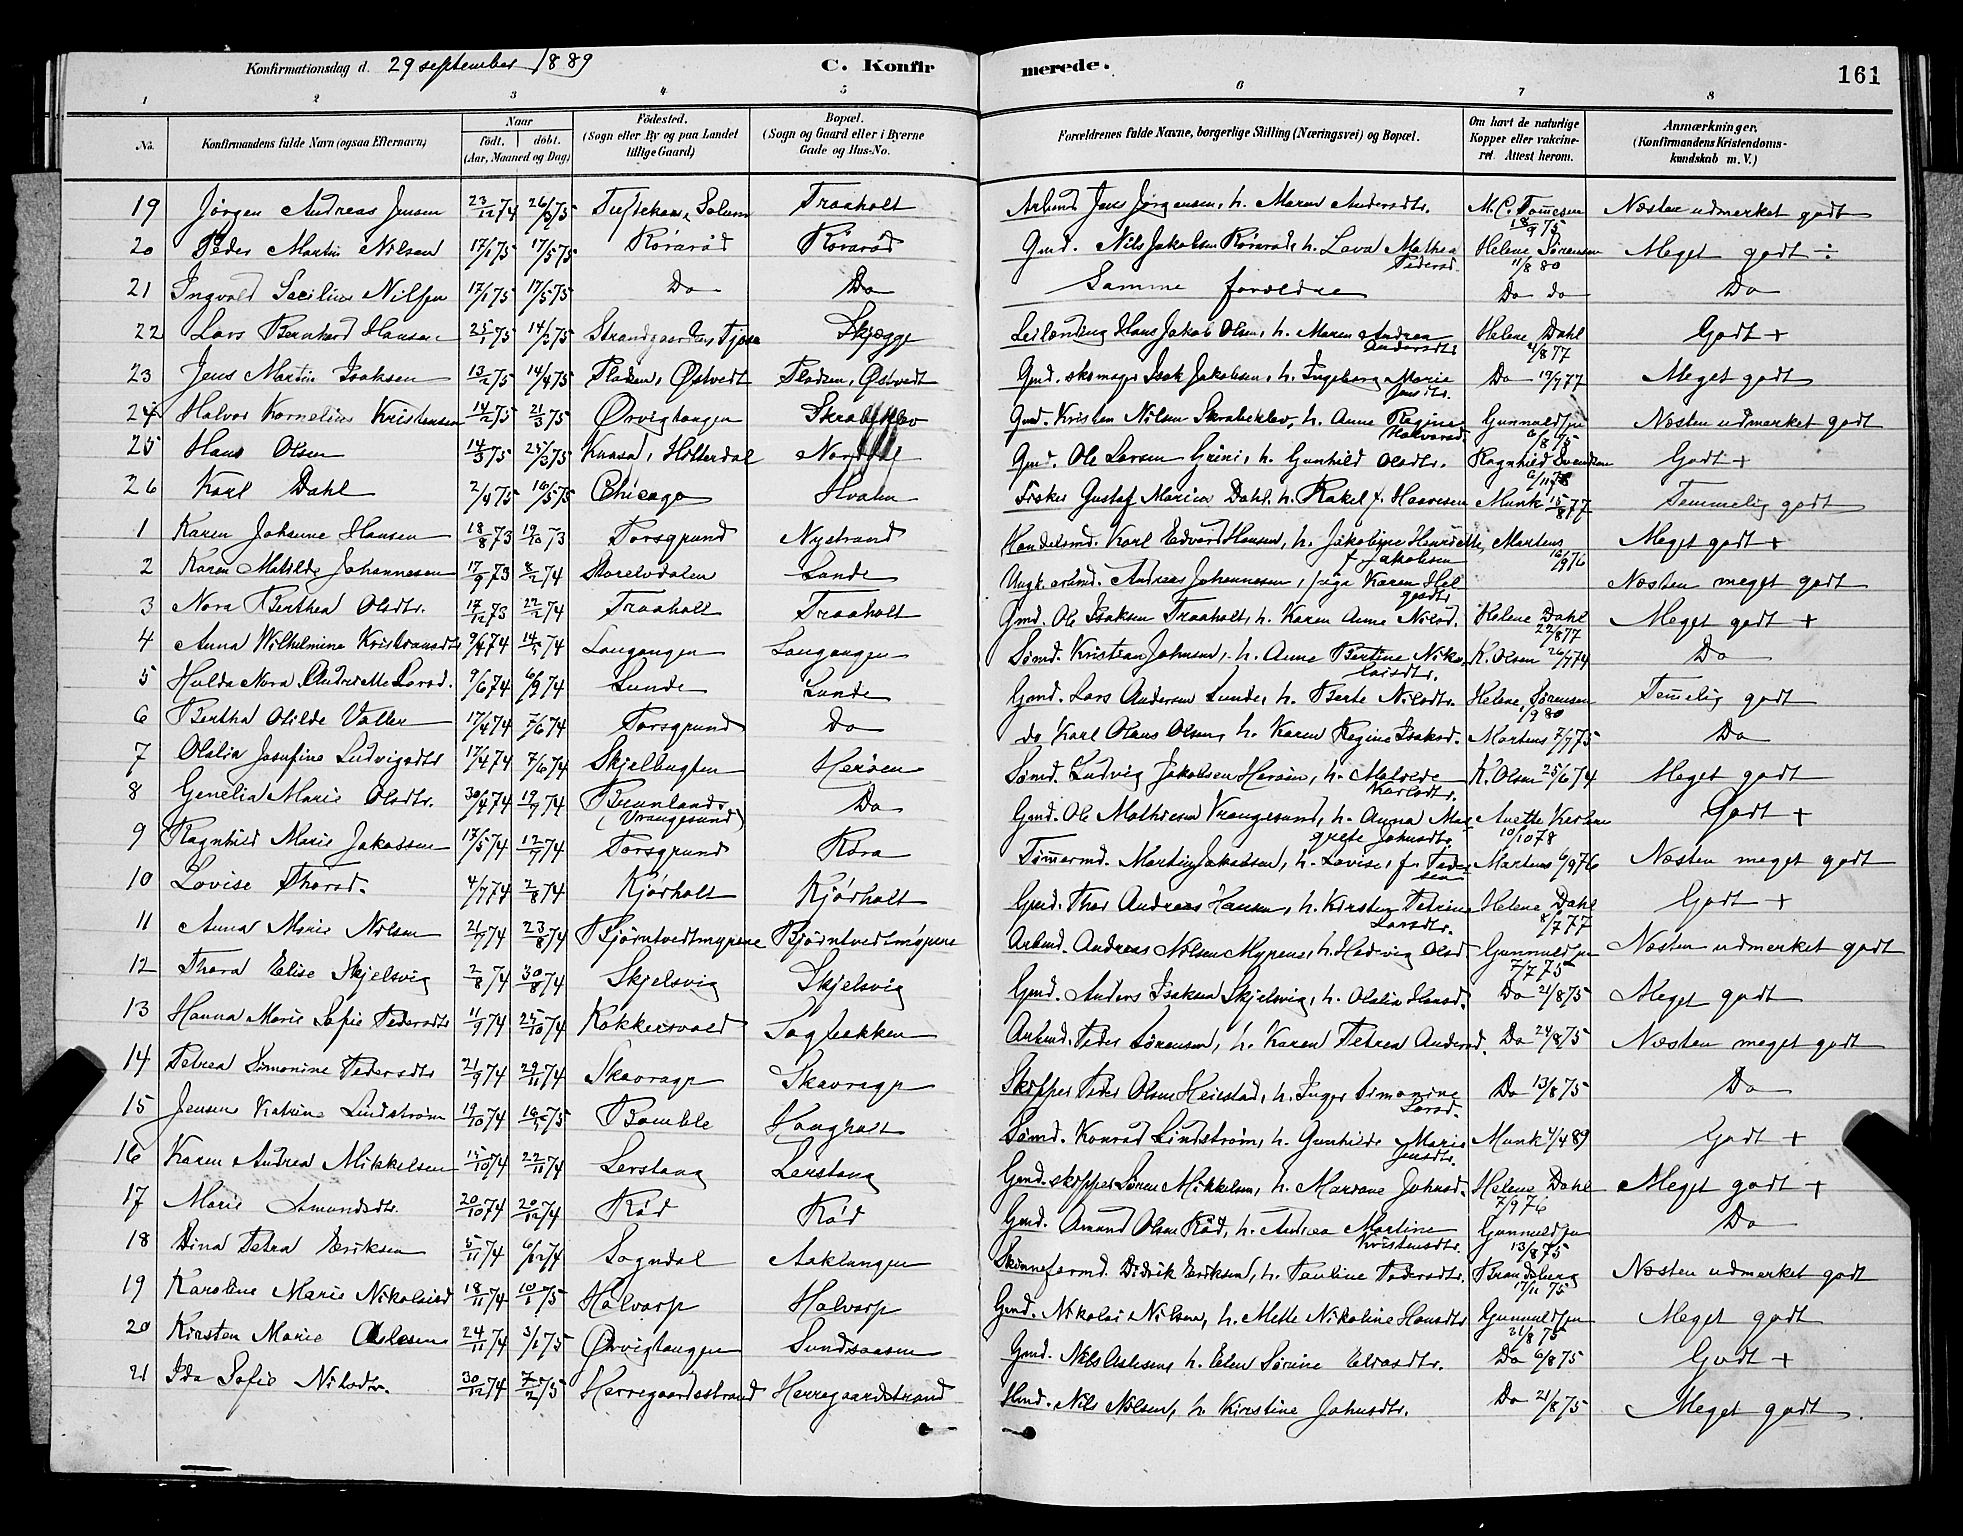 Konfirmationsdag d. 29 september 1889 C. Konfirmerede. 161
1 2 3 4 5 6 7 8
No. Konfirmandens fulde Navn (ogsaa Efternavn) Naar født. døbt. (Aar, Maaned og Dag) Fødested. (Sogn eller By og paa Landet tillige Gaard) Bopæl. (Sogn og Gaard eller i Byerne Gade og Hus-No. Forældrenes fulde Navne, borgerlige Stilling (Næringsvei) og Bopæl. Om havt de naturlige Kopper eller vakcineret. Attest herom. Anmærkninger. (Konfirmandens Kristendomskundskab m. V.)
19 Jørgen Andreas Jensen 23/12 74 26/3 75 Solum Traaholt Arbmd Jens Jørgensen, h. Maren Andersdtr. M. C. Tomesen 18/9 75 Næsten udmerket godt
20 Peder Martin Nilsen 17/1 75 17/5 75 Rørarød Rørarød Gmd. Nils Jakobsen Rørarød, h. Lava Mathea Pedersd. Helene Sørensen 11/8 80 Meget godt ÷
21 Ingvald Secilius Nilsen 17/1 75 17/5 75 Do Do Samme forældre Do do Do
22 Lars Bernhard Hansen 25/1 75 14/3 75 Skjegge Leilending Hans Jakob Olsen, h. Maren Andrea Andersdtr. Helene Dahl 4/8 77 Godt +
23 Jens Martin Isaksen 13/2 75 14/4 75 Fladen, Østvedt Fladen, Østvedt Gmd. skomager Isak Jakobsen, h. Ingeborg Marie Jensdtr. Do 19/7 77 Meget godt
24 Halvor Kornelius Kristensen 14/2 75 21/3 75 Ørvigtangen Skrabeklev Gmd. Kristen Nilsen Skrabeklev, h. Anne Regine Halvorsd. Gunnuldsen 6/8 75 Næsten udmerket godt
25 Hans Olsen 14/3 75 25/3 75 Kaasa, Hitterdal Nordal Gmd. Ole Larsen Grini, h. Gunhild Olsdtr. Ragnhild Svendsen 6/11 78 Godt +
26 Karl Dahl 2/4 75 16/5 75 Chicago Hvalen Fisker Gustaf Marius Dahl, h. Rakel f. Haavesen Munk 15/8 77 Temmelig godt
1 Karen Johanne Hansen 18/8 73 19/10 73 Porsgrund Nystrand Handelsmd. Karl Edvard Hansen, h. Jakobine Henriette f. Jakobsen Martens 16/9 76 Meget godt +
2 Karen Matilde Johannesen 17/9 73 8/2 74 Storelvdalen Lunde Ungk. arbmd. Andreas Johannesen, pige Karen Helgesdtr. Næsten meget godt
3 Nora Berthea Olsdtr. 17/12 73 22/2 74 Traaholt Traaholt Gmd. Ole Isaksen Traaholt, h. Karen Anne Nilsd. Helene Dahl 22/8 77 Meget godt +
4 Anna Wilhelmine Kristiansdtr 9/4 74 14/5 74 Langangen Langangen Sømd. Kristian Johnsen, h. Anne Bertine Nikolaisdtr. K. Olsen 26/7 74 Do
5 Hulda Nora Andrette Larsd. 9/6 74 6/9 74 Lunde Lunde Gmd. Lars Andersen Lunde, h. Berte Nilsdtr. Helene Sørensen 1/9 80 Temelig godt
6 Bertha Otilde Valler 17/4 74 7/6 74 Porsgrund Do do Karl Olaus Olsen, h. Karen Regine Isaksd. Martens 7/7 75 Do
7 Olalia Josefine Ludvigsdtr 17/4 74 7/6 74 Skjelbugten Herøen Sømd. Ludvig Jakobsen Herøen, h. Matrede Karlsdtr. K. Olsen 25/6 74 Meget godt
8 Genelia Marie Olsdtr. 30/4 74 19/7 74 Brunlands (Vrangesund) Do Gmd. Ole Mathisen Vrangesund, h. Anna Margrete Johnsdtr. Anette Karlsen 10/10 78 Godt +
9 Ragnhild Marie Jakobsen 17/5 74 12/7 74 Porsgrund Røra Tømermd. Martin Jakobsen, h. Lovise, f. Pedersen Martens 6/9 76 Næsten meget godt
10 Lovise Thorsd. 4/7 74 2/8 74 Kjørholt Kjørholt Gmd. Thor Andreas Hansen, h. Kirsten Petrine Larsdtr. Helene Dahl 8/7 77 Godt +
11 Anna Marie Nilsen 21/7 74 23/8 74 Bjørntvedtmyrene Bjørntvedtmyrene Arbmd. Andreas Nilsen Myrene, h. Hedvig Olsd. Gunnuldsen 7/7 75 Næsten udmerket godt
12 Thora Elise Skjelsvig 2/8 74 30/8 74 Skjelsvig Skjelsvig Gmd. Anders Isaksen Skjelsvig, h. Olalia Hansd. Do 21/8 75 Meget godt
13 Hanna Marie Sofie Pedersdtr 11/9 74 25/10 74 Kokkersvold Sagbekken Arbmd. Peder Sørensen, h. Karen Petrea Andersd. Do 24/8 75 Næsten meget godt
14 Petrea Simonine Pedersdtr 21/9 74 29/11 74 Skavrager Skavrager Skipper Peder Olsen Heiestad, h. Inger Simonine Larsd. Do 13/8 75 Do
15 Jensine Katrine Lindstrøm 19/10 74 16/5 75 Bamble Haugholt Sømd. Konrad Lindstrøm, h. Gunhilde Marie Jensdtr. Munk 4/4 89 Godt +
16 Karen Andrea Mikkelsen 15/10 74 22/11 74 Lerstang Lerstang Gmd. skipper Søren Mikkelsen, h. Mariane Johnsd. Helene Dahl 7/9 76 Meget godt +
17 Marie Amundsdtr. 20/10 74 20/12 74 Rød Rød Gmd. Amund Olsen Rød, h. Andrea Martine Kristensdtr. Gunnuldsen 13/8 75 Do
18 Dina Petra Eriksen 5/11 74 6/12 74 Sogndal Aaklungen Skinneformd. Didrik Eriksen, h. Pauline Pedersdtr. Brandsberg 17/11 75 Næsten udmerket godt
19 Karoline Marie Nikolaisd 18/11 74 10/1 75 Halvarp Halvarp Gmd. Nikolai Nilsen, h. Mette Nikoline Hansdtr Gunnuldsen 21/8 75 Meget godt
20 Kirsten Marie Aslesen 24/11 74 3/1 75 Ørvigtangen Sundsaasen Gmd. Nils Aslesen, h. Elen Sørine Eliasdtr. Do 6/8 75 Godt +
21 Ida Sofie Nilsdtr. 30/12 74 7/2 75 Herregaardsstrand Herregaardstrand Hmd. Nils Nilsen, h. Kirstine Johnsdtr. Do 21/8 75 Meget godt.